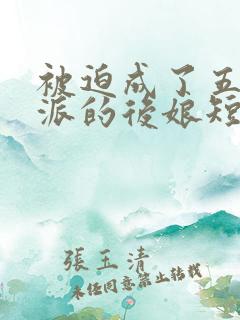 被迫成了五
派的後娘短
張玉清
未经同意禁止转载